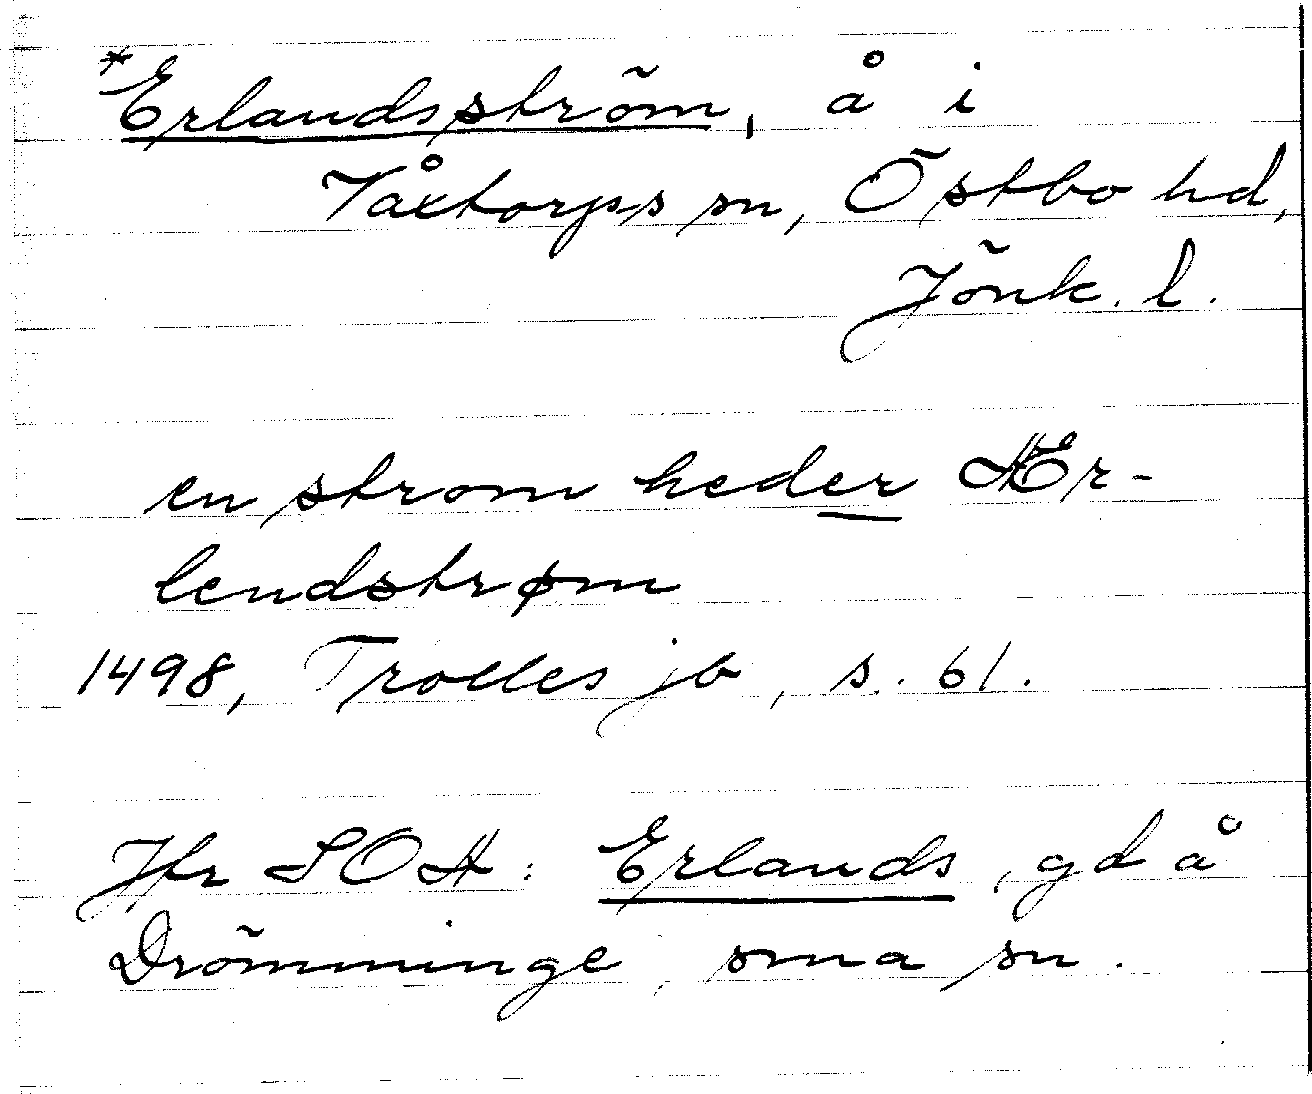 *Erlandsström, å i
Våxtorps sn, Östbo hd,
Jönk. l.
en strom heder Er-
lendstrøm
1498, Trolles jb, s. 61.
Jfr SOA: Erlands, gd å
Drömminge, sma sn.